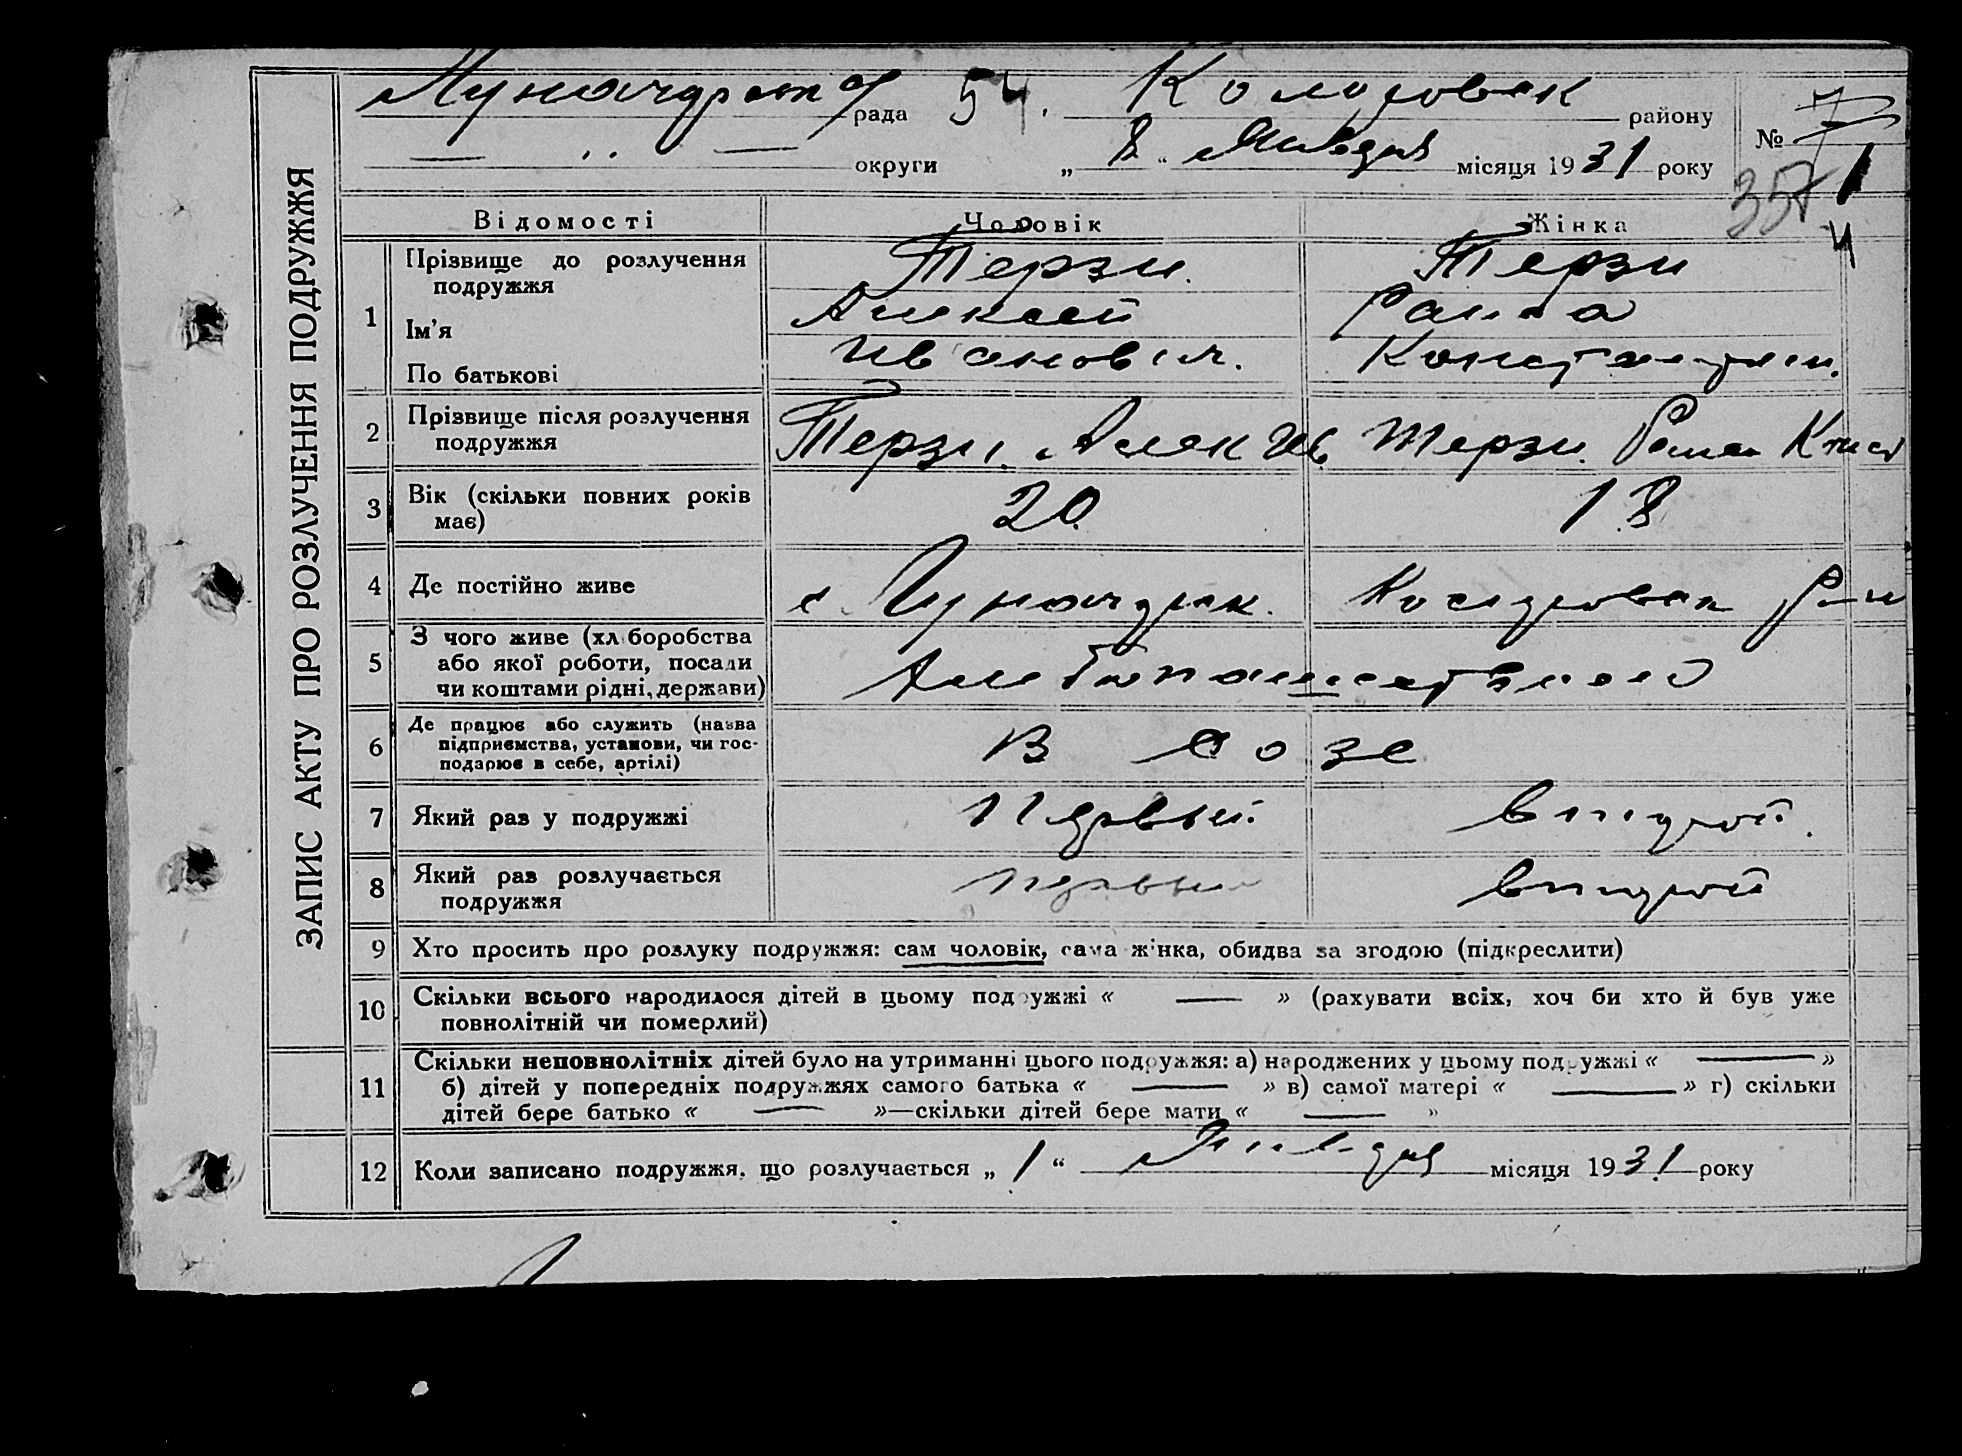 рада 54. району
округи „ 8 “ Января місяця 1931 року
№ 7
357
1
ЗАПИС АКТУ ПРО РОЗЛУЧЕННЯ ПОДРУЖЖЯ
Відомості Чоловік Жінка
1 Прізвище до розлучення подружжя Терзи. Терзи
Ім'я Алексей
По батькові Иванович. Константин.
2 Прізвище після розлучення подружжя Терзи. Алек Ив. Терзи.
3 Вік (скільки повних років має) 20. 18
4 Де постійно живе с.
5 З чого живе (хліборобства або якої роботи, посади чи коштами рідні, держави)
6 Де працює або служить (назва підприємства, установи, чи господарює в себе, артілі) В созе
7 Який раз у подружжі Первый. второй.
8 Який раз розлучається подружжя первый второй
9 Хто просить про розлуку подружжя: сам чоловік, сама жінка, обидва за згодою (підкреслити)
10 Скільки всього народилося дітей в цьому подружжі « — » (рахувати всіх, хоч би хто й був уже
повнолітній чи померлий)
11 Скільки неповнолітніх дітей було на утриманні цього подружжя: а) народжених у цьому подружжі « — »
б) дітей у попередніх подружжях самого батька « — » в) самої матері « — » г) скільки
дітей бере батько « — »—скільки дітей бере мати « — »
12 Коли записано подружжя, що розлучається „ 1 “ Января місяця 1931. року